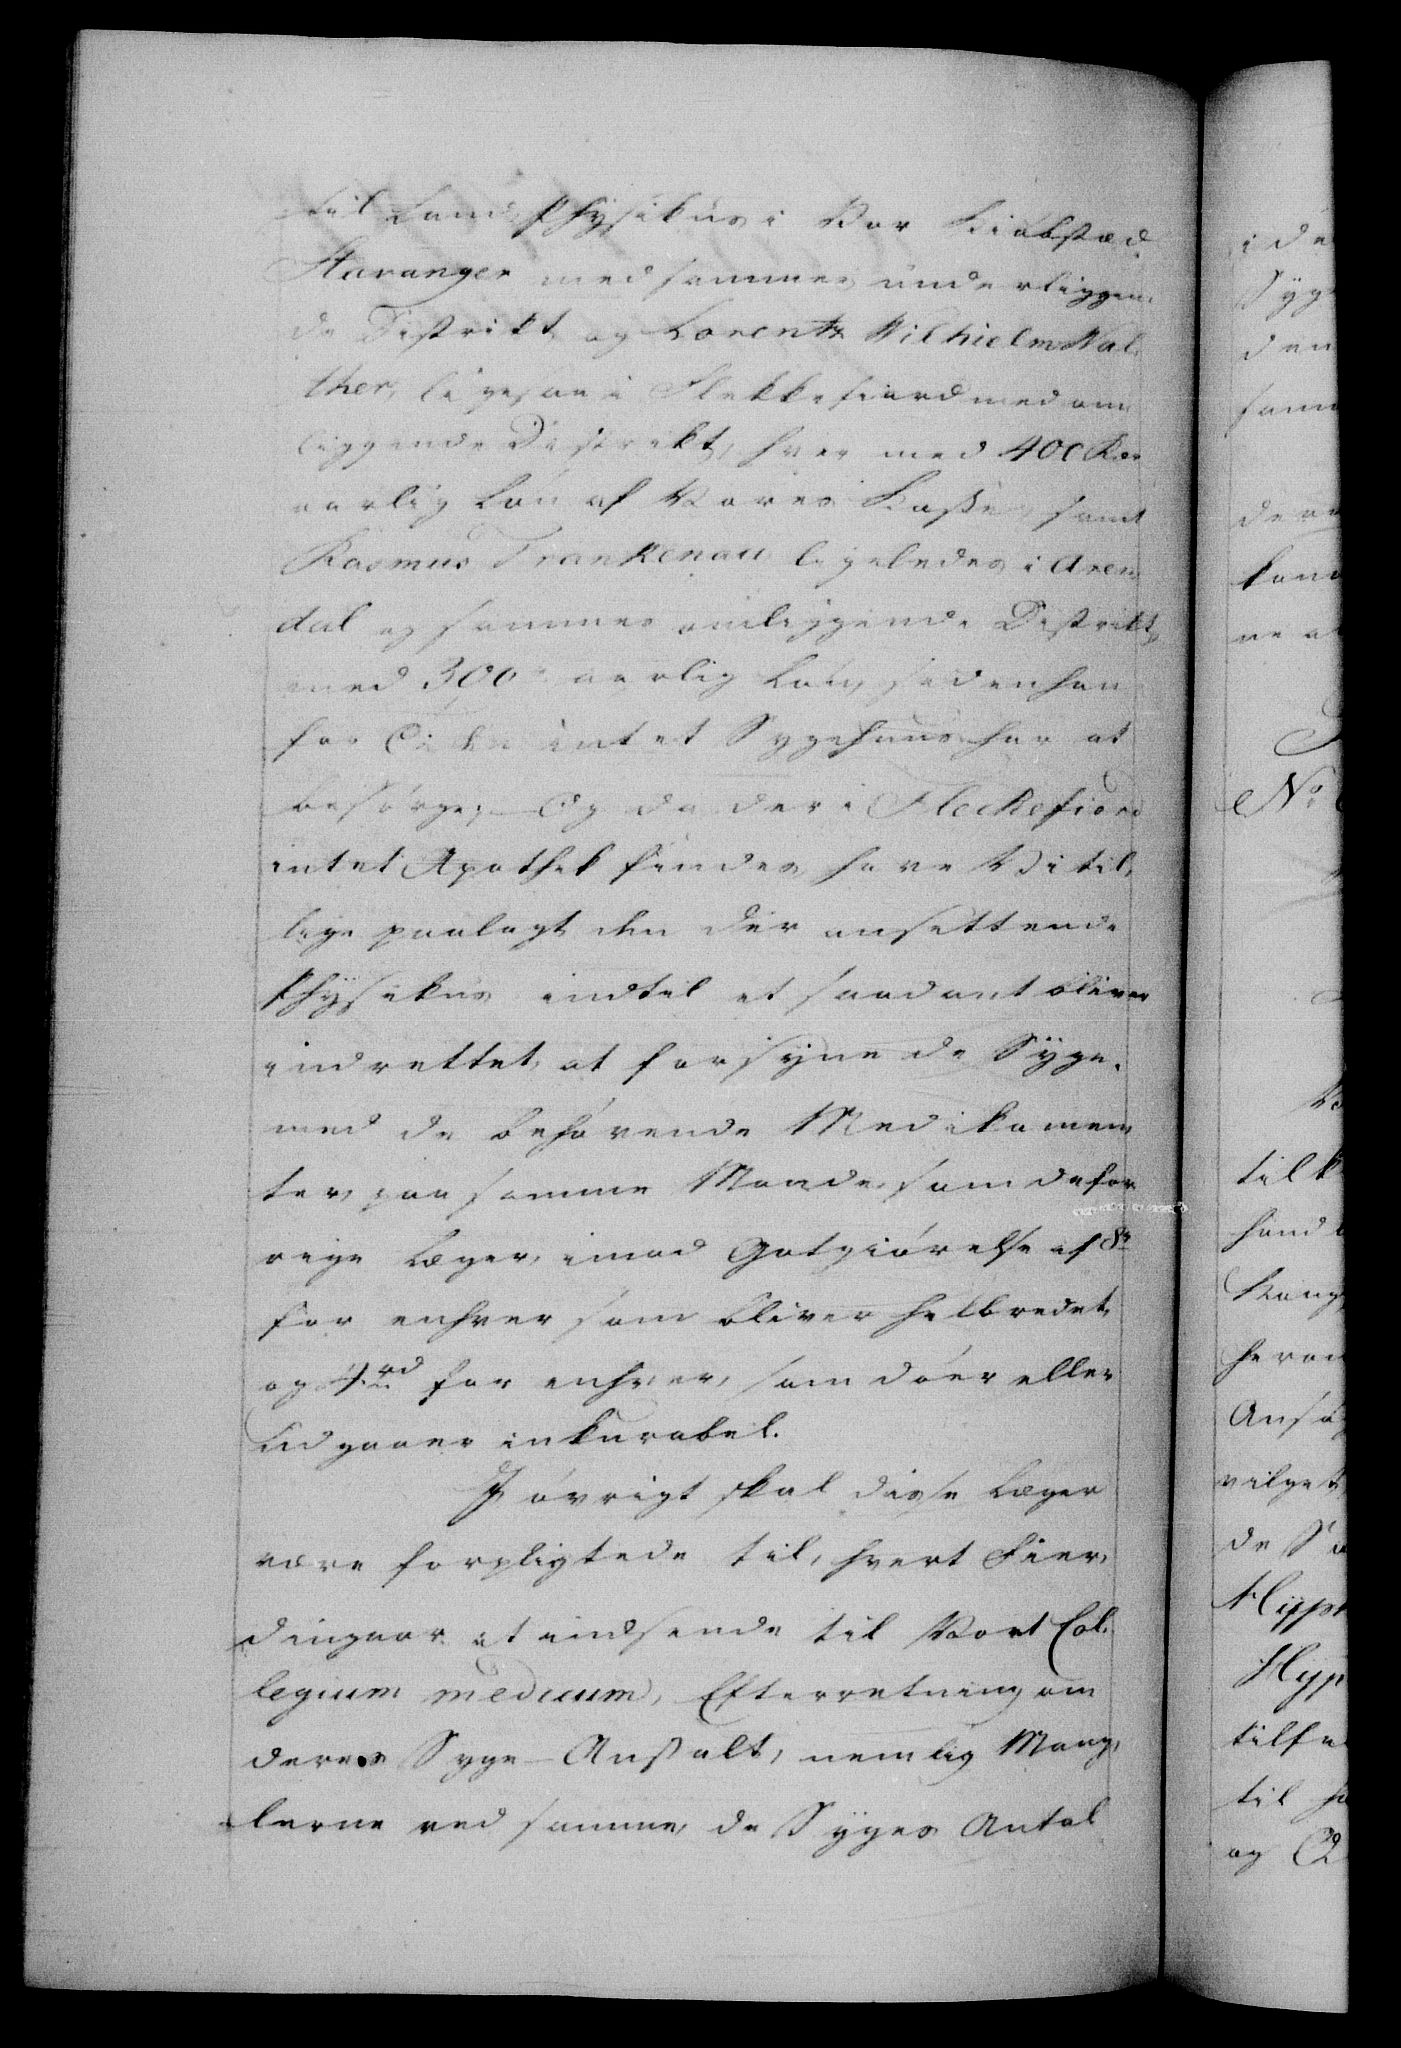 til Land Physikus i Vor Kiøbstæd
Stavanger med sammes underliggen-
de Distrikt, og Lorentz Wilhielm Wal-
ther, ligesaa i Flekkefiord med om-
liggende Distrikt, hver med 400 Rdr
aarlig Løn af Vores Kasse, samt
Rasmus Frankenau ligeledes i Aren-
dal og sammes omliggende Distrikt,
med 300 aarlig Løn, siden han
for Tiden intet Sygehuus har at
besørge; Og da der i Fleckefiord
intet Apothek findes, have Vi til-
lige paalagt den der ansættende
Physikus indtil et saadant bliver
indrettet, at forsyne de Syge
med de behøvende Medikamen-
ter, paa samme Maade, som de for-
rige Læger, imod Godtgiørelse af 8rd
for enhver som bliver helbredet,
og 4rd for enhver, som døer eller
udgaaer inkurabel.
I øvrigt skal disse Læger
være forpligtede til, hvert Fier-
dingaar at indsende til Vort Col-
legium medicum, Efterretning om
deres Syge-Anstalt, nemlig Mang-
lerne ved samme, de Syges Antal